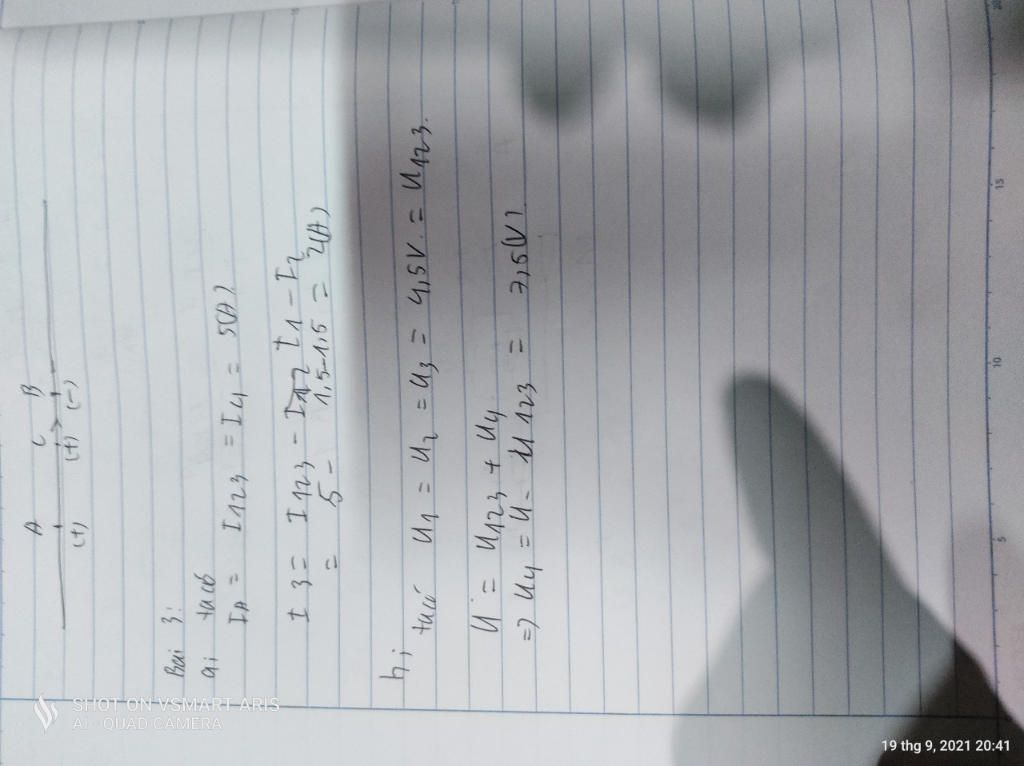 A C B
(+) (+) (-)
Bài 3:
a; ta có
IA = I123 = I4 = 5(A)
I3 = I123 - I1 - I2
= 5 - 1,5-1,5 = 2(A)
b;
ta có U1 = U2 = U3 = 4,5V. = U123.
U = U123 + U4
=> U4 = U - U123 = 7,5(V).
5
10
15
20
SHOT ON VSMART ARIS
AI QUAD CAMERA
19 thg 9, 2021 20:41